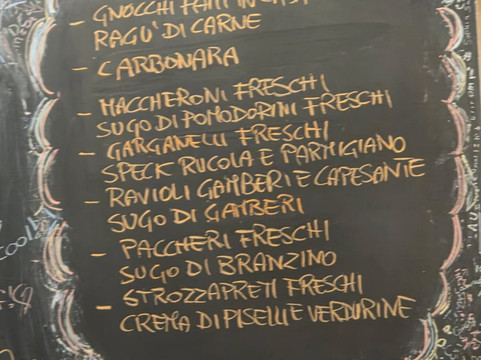 - GNOCCHI FATTI IN CASA
RAGU' DI CARNE
- CARBONARA
- MACCHERONI FRESCHI
SUGO DI POMODORINI FRESCHI
- GARGANELLI FRESCHI
SPECK RUCOLA E PARMIGIANO
- RAVIOLI GAMBERI E CAPESANTE
SUGO DI GAMBERI
- PACCHERI FRESCHI
SUGO DI BRANZINO
- STROZZAPRETI FRESCHI
CREMA DI PISELLI E VERDURINE